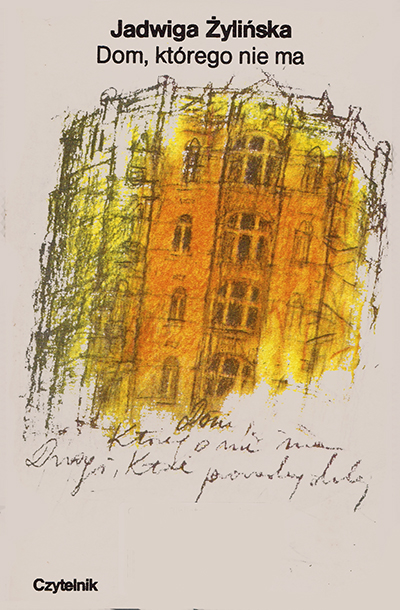 Jadwiga Żylińska
Dom, którego nie ma
Dom,
którego nie ma
Drogi, które prowadzą
Czytelnik